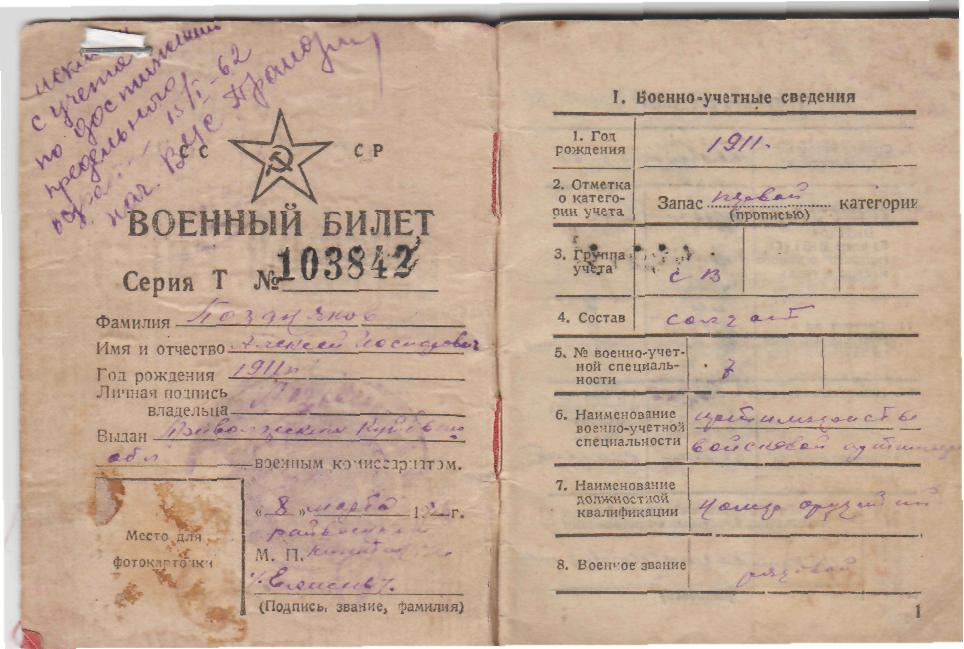 с учета
по достижении
предельного
15/I-62
нач. ВУС
СС СР
ВОЕННЫЙ БИЛЕТ
Серия Т № 103842
Фамилия Поздняков
Имя и отчество Алексей
Год рождения 1911 г
Личная подпись
владельца
Выдан
обл военным комиссариатом.
Место для
фотокарточки
„8„ марта 19 г.
М. П.
(Подпись, звание, фамилия)
I. Военно-учетные сведения
1. Год
рождения
1911.
2. Отметка
о катего-
рии учета
Запас первой категории
(прописью)
3. Группа
учета
СВ
4. Состав
солдат
5. № военно-учет-
ной специаль-
ности
7
6. Наименование
военно-учетной
специальности
войсковой
7. Наименование
должностной
квалификации
номер орудийный
8. Военное звание
рядовой
1